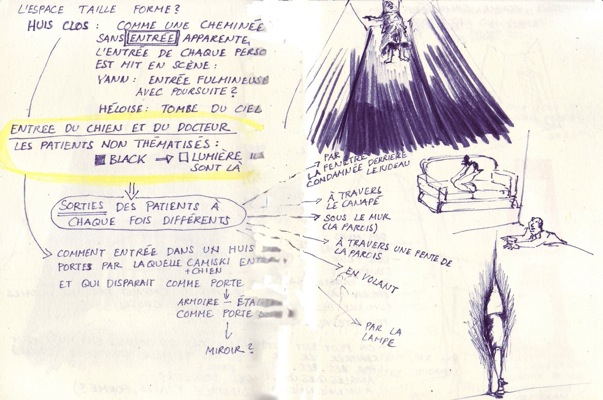 L'ESPACE TAILLE FORME?
HUIS CLOS : COMME UNE CHEMINÉE
SANS ENTRÉE APPARENTE,
L'ENTRÉE DE CHAQUE PERSO
EST MIT EN SCÈNE:
YANN: ENTRÉE FULMINEUSE
AVEC POURSUITE?
HÉLOÏSE: TOMBE DU CIEL
ENTREE DU CHIEN ET DU DOCTEUR
LES PATIENTS NON THÉMATISÉS:
BLACK → LUMIÈRE
SONT LÀ
SORTIES DES PATIENTS À
CHAQUE FOIS DIFFÉRENTS
PAR
LA FENÊTRE
CONDAMNÉE DERRIÈRE
LE RIDEAU
À TRAVERS
LE CANAPÉ
SOUS LE MUR
(LA PAROIS)
À TRAVERS UNE FENTE DE
LA PAROIS
EN VOLANT
PAR LA
LAMPE
COMMENT ENTRÉE DANS UN HUIS
PORTES PAR LAQUELLE CAMISKI ENT
+ CHIEN
ET QUI DISPARAIT COMME PORTE
ARMOIRE - ÉTAG
COMME PORTE
MIROIR?